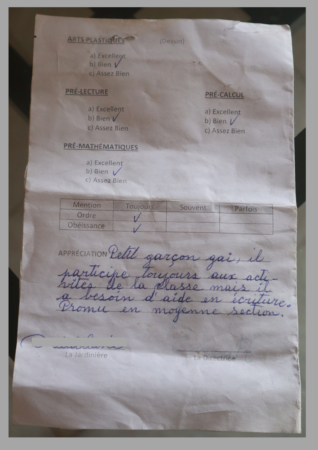 ARTS PLASTIQUES (Dessin)
a) Excellent
b) Bien ✓
c) Assez Bien
PRÉ-LECTURE PRÉ-CALCUL
a) Excellent a) Excellent
b) Bien ✓ b) Bien ✓
c) Assez Bien c) Assez Bien
PRÉ-MATHÉMATIQUES
a) Excellent
b) Bien ✓
c) Assez Bien
Mention Toujours Souvent Parfois
Ordre ✓
Obéissance ✓
APPRÉCIATION Petit garçon gai, il
participe toujours aux acti-
vités de la classe mais il
a besoin d'aide en écriture.
Promu en moyenne section.
La Jardinière La Directrice